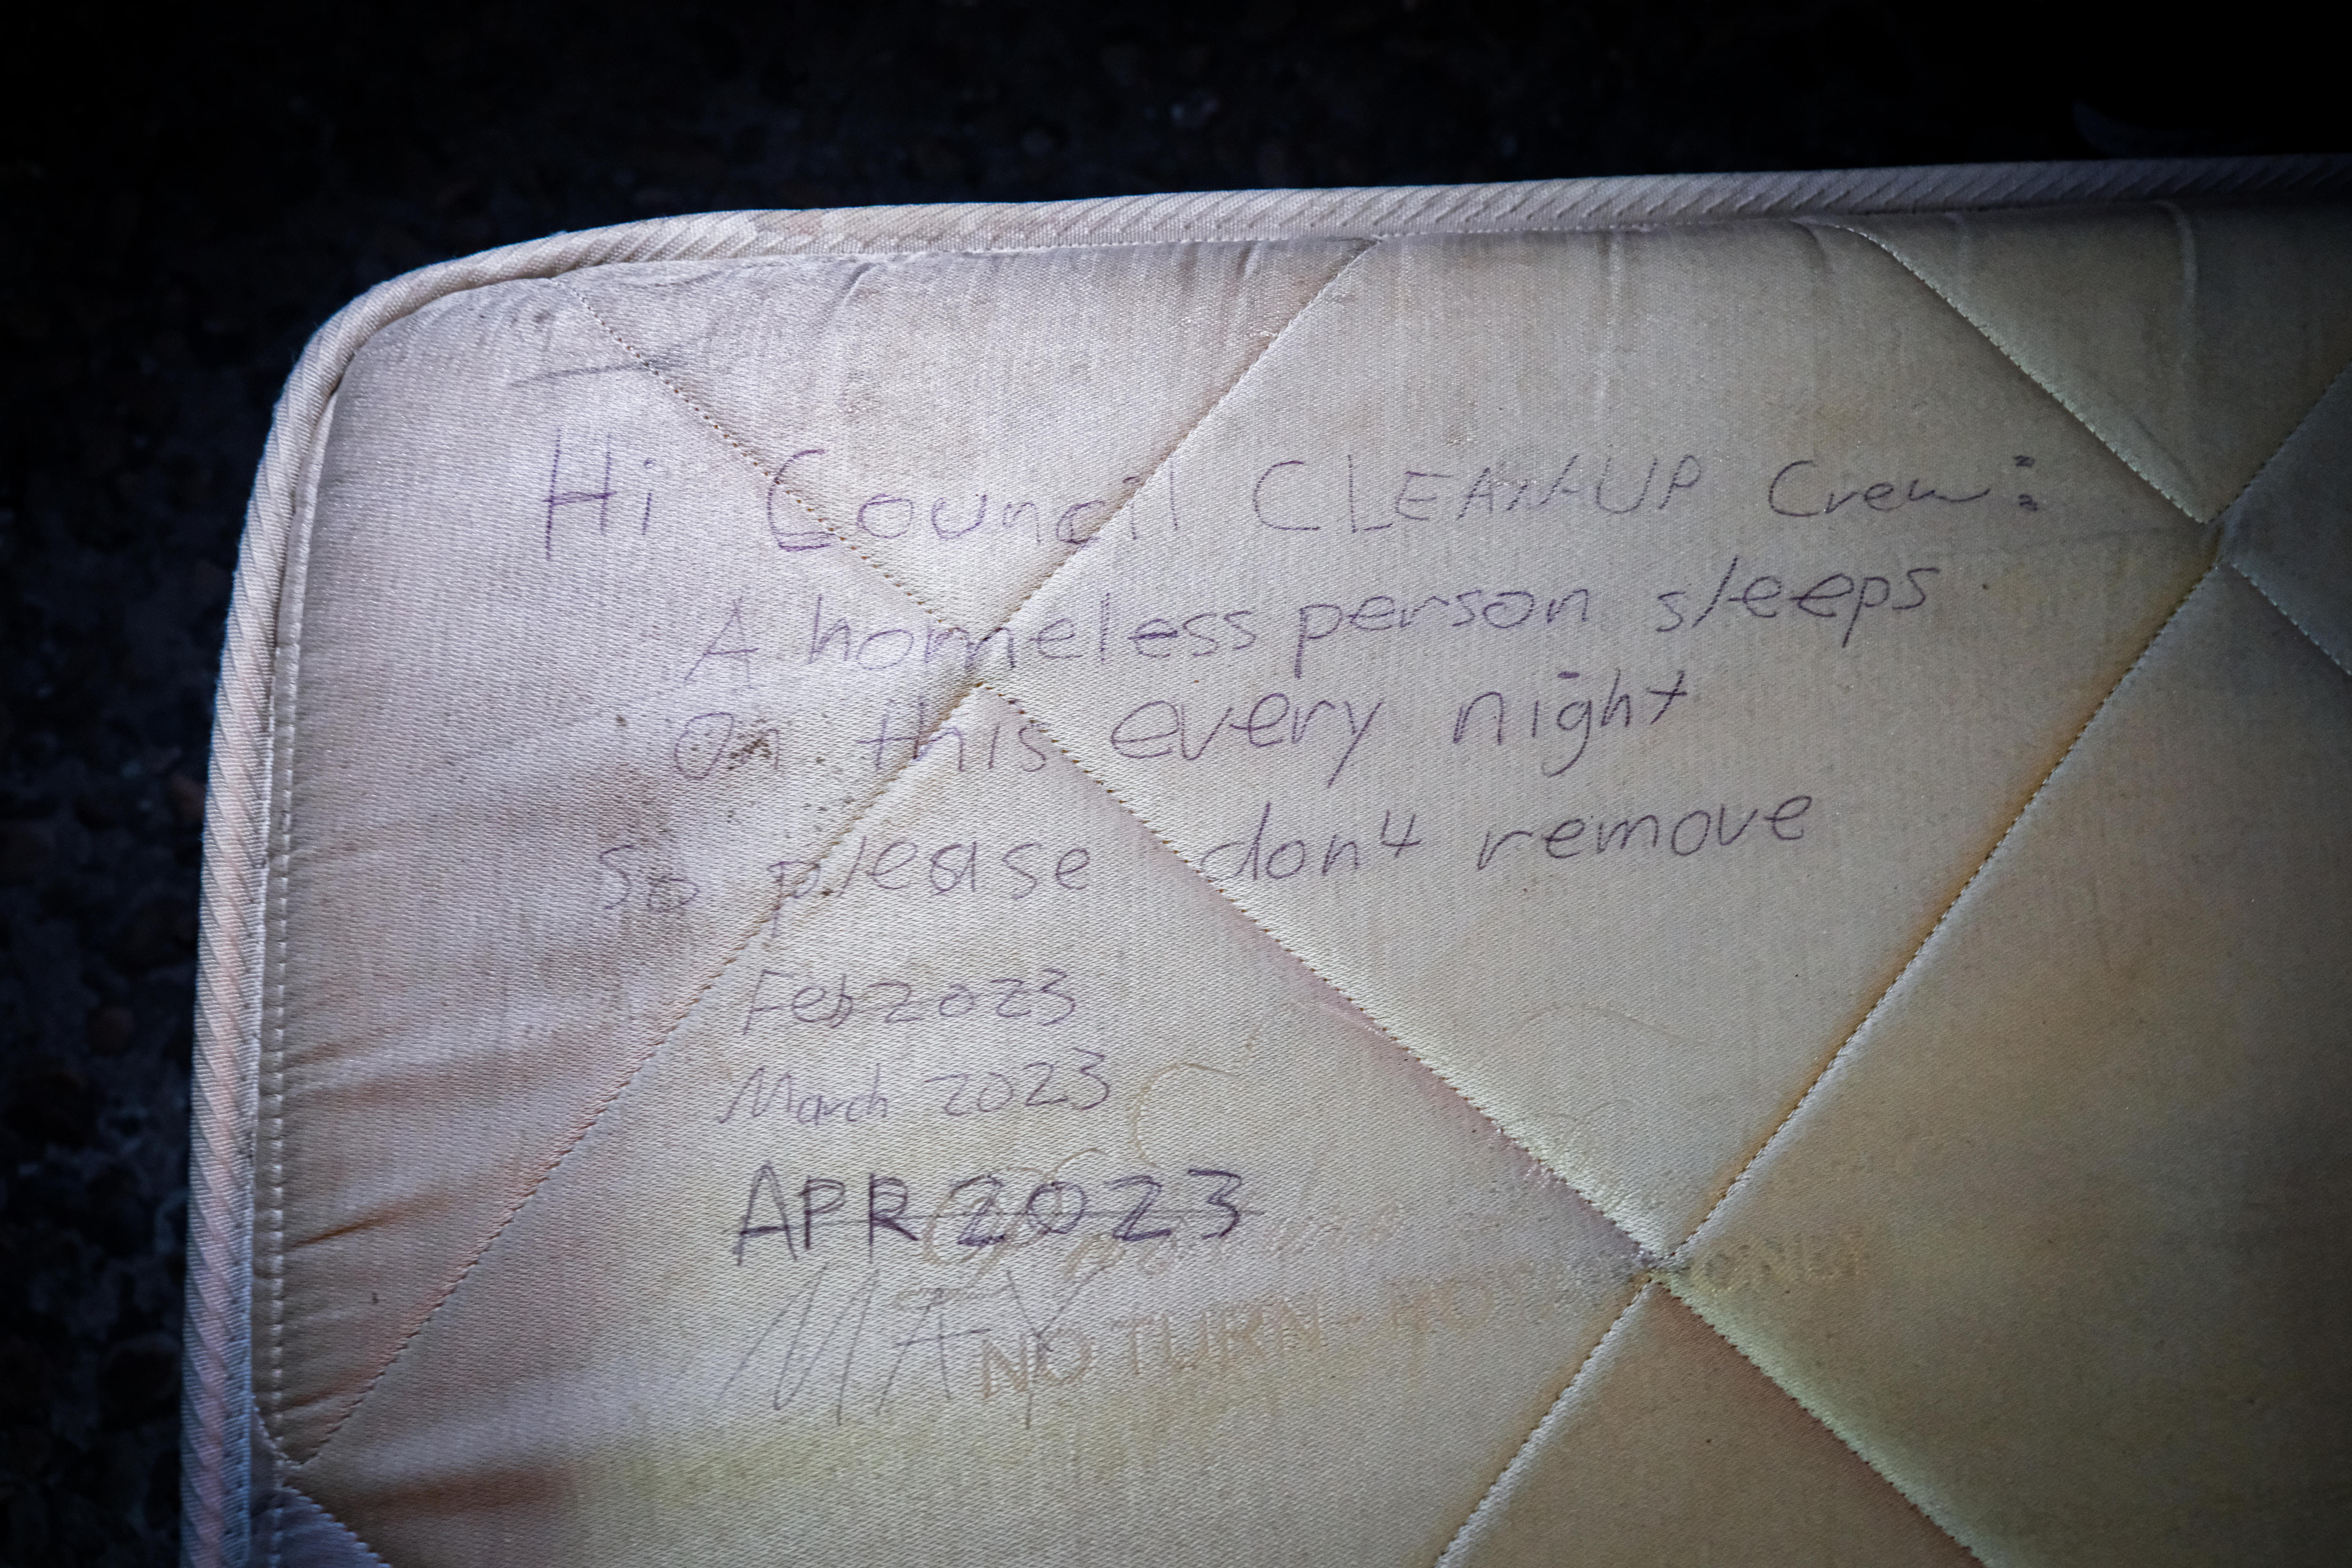 Hi Council CLEAN-UP Crew:
A homeless person sleeps
on this every night
So please don't remove
Feb 2023
March 2023
APR 2023
MAY
NO TURN-
ONLY